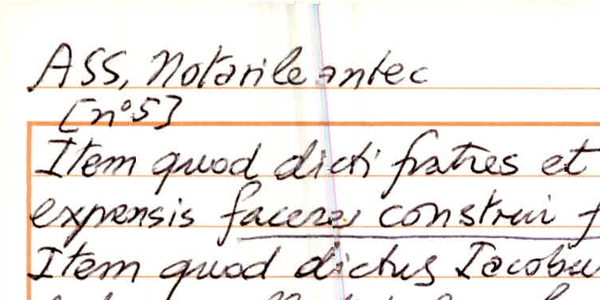 ASS, Notarile antec
[n°5]
Item quod dicti fratres et
expensis facere construi f
Item quod dictus Iacobu